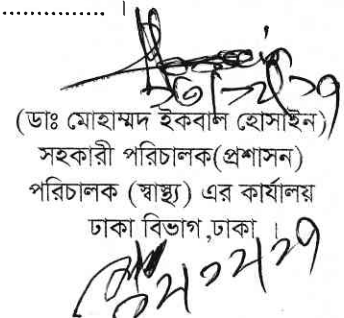 .................. ।
(ডাঃ মোহাম্মদ ইকবাল হোসাইন)
সহকারী পরিচালক(প্রশাসন)
পরিচালক (স্বাস্থ্য) এর কার্যালয়
ঢাকা বিভাগ,ঢাকা ।